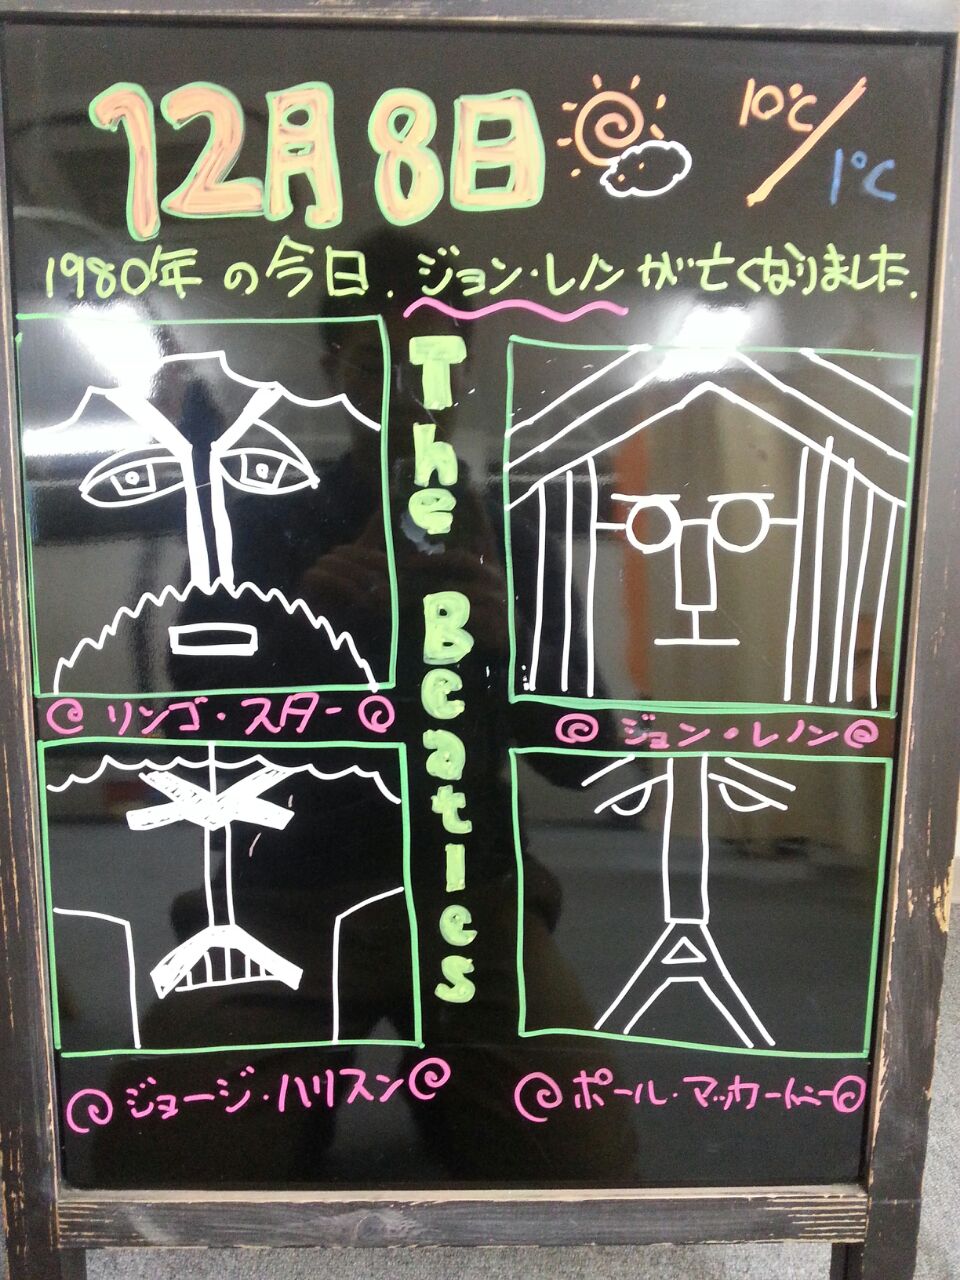 12月8日
10℃/1℃
1980年の今日、ジョン・レノンが亡くなりました。
The Beatles
リンゴ・スター
ジョン・レノン
ジョージ・ハリスン
ポール・マッカートニー